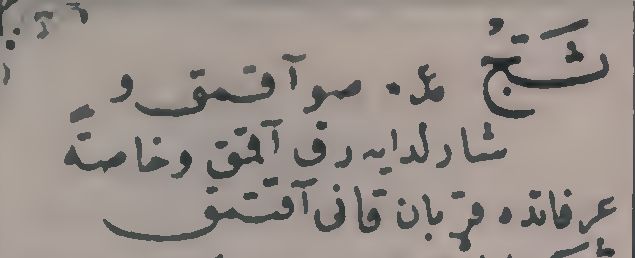 ثَجّ ع. صو آقمق و
شارلدایه رق آقمق وخاصةً
عرفاتده قربان قانی آقتمق